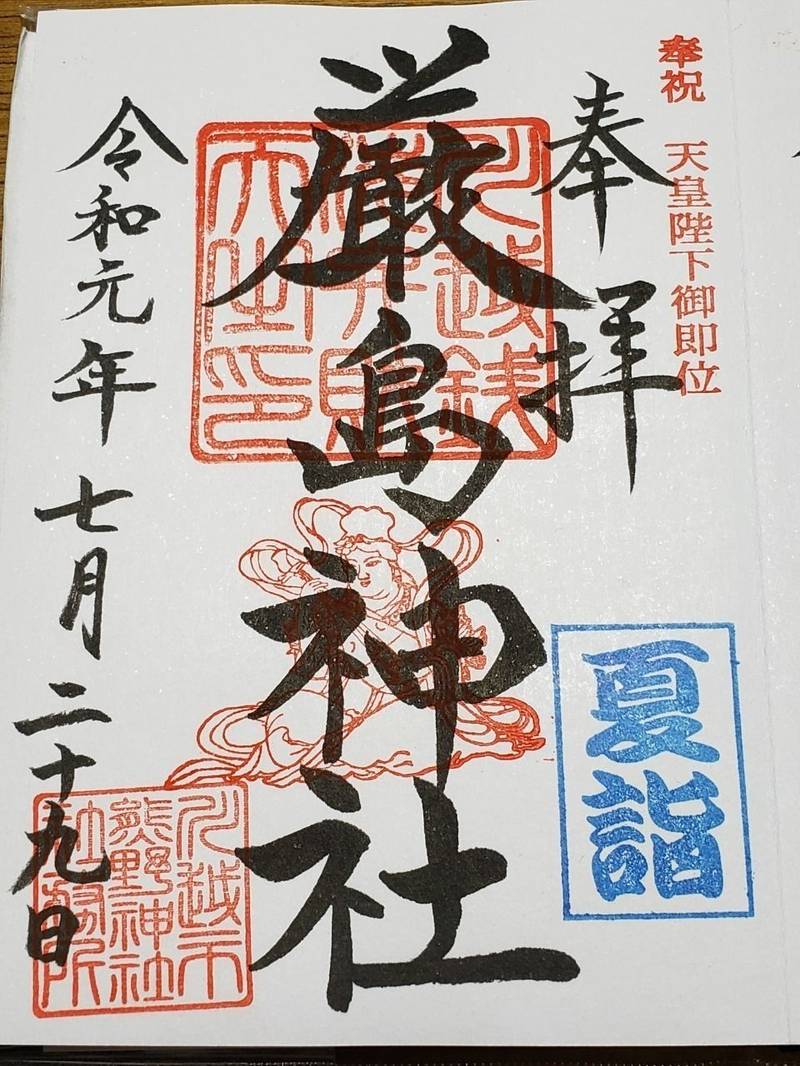 奉祝 天皇陛下御即位
奉拝
夏詣
厳島神社
川越銭
洗弁財
天之印
令和元年七月二十九日
川越市
熊野神社
社務所